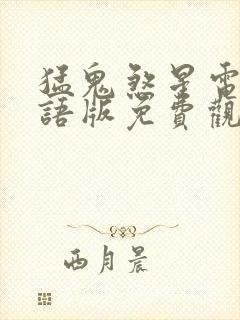 猛鬼煞星電
語版免費觀
西月晨